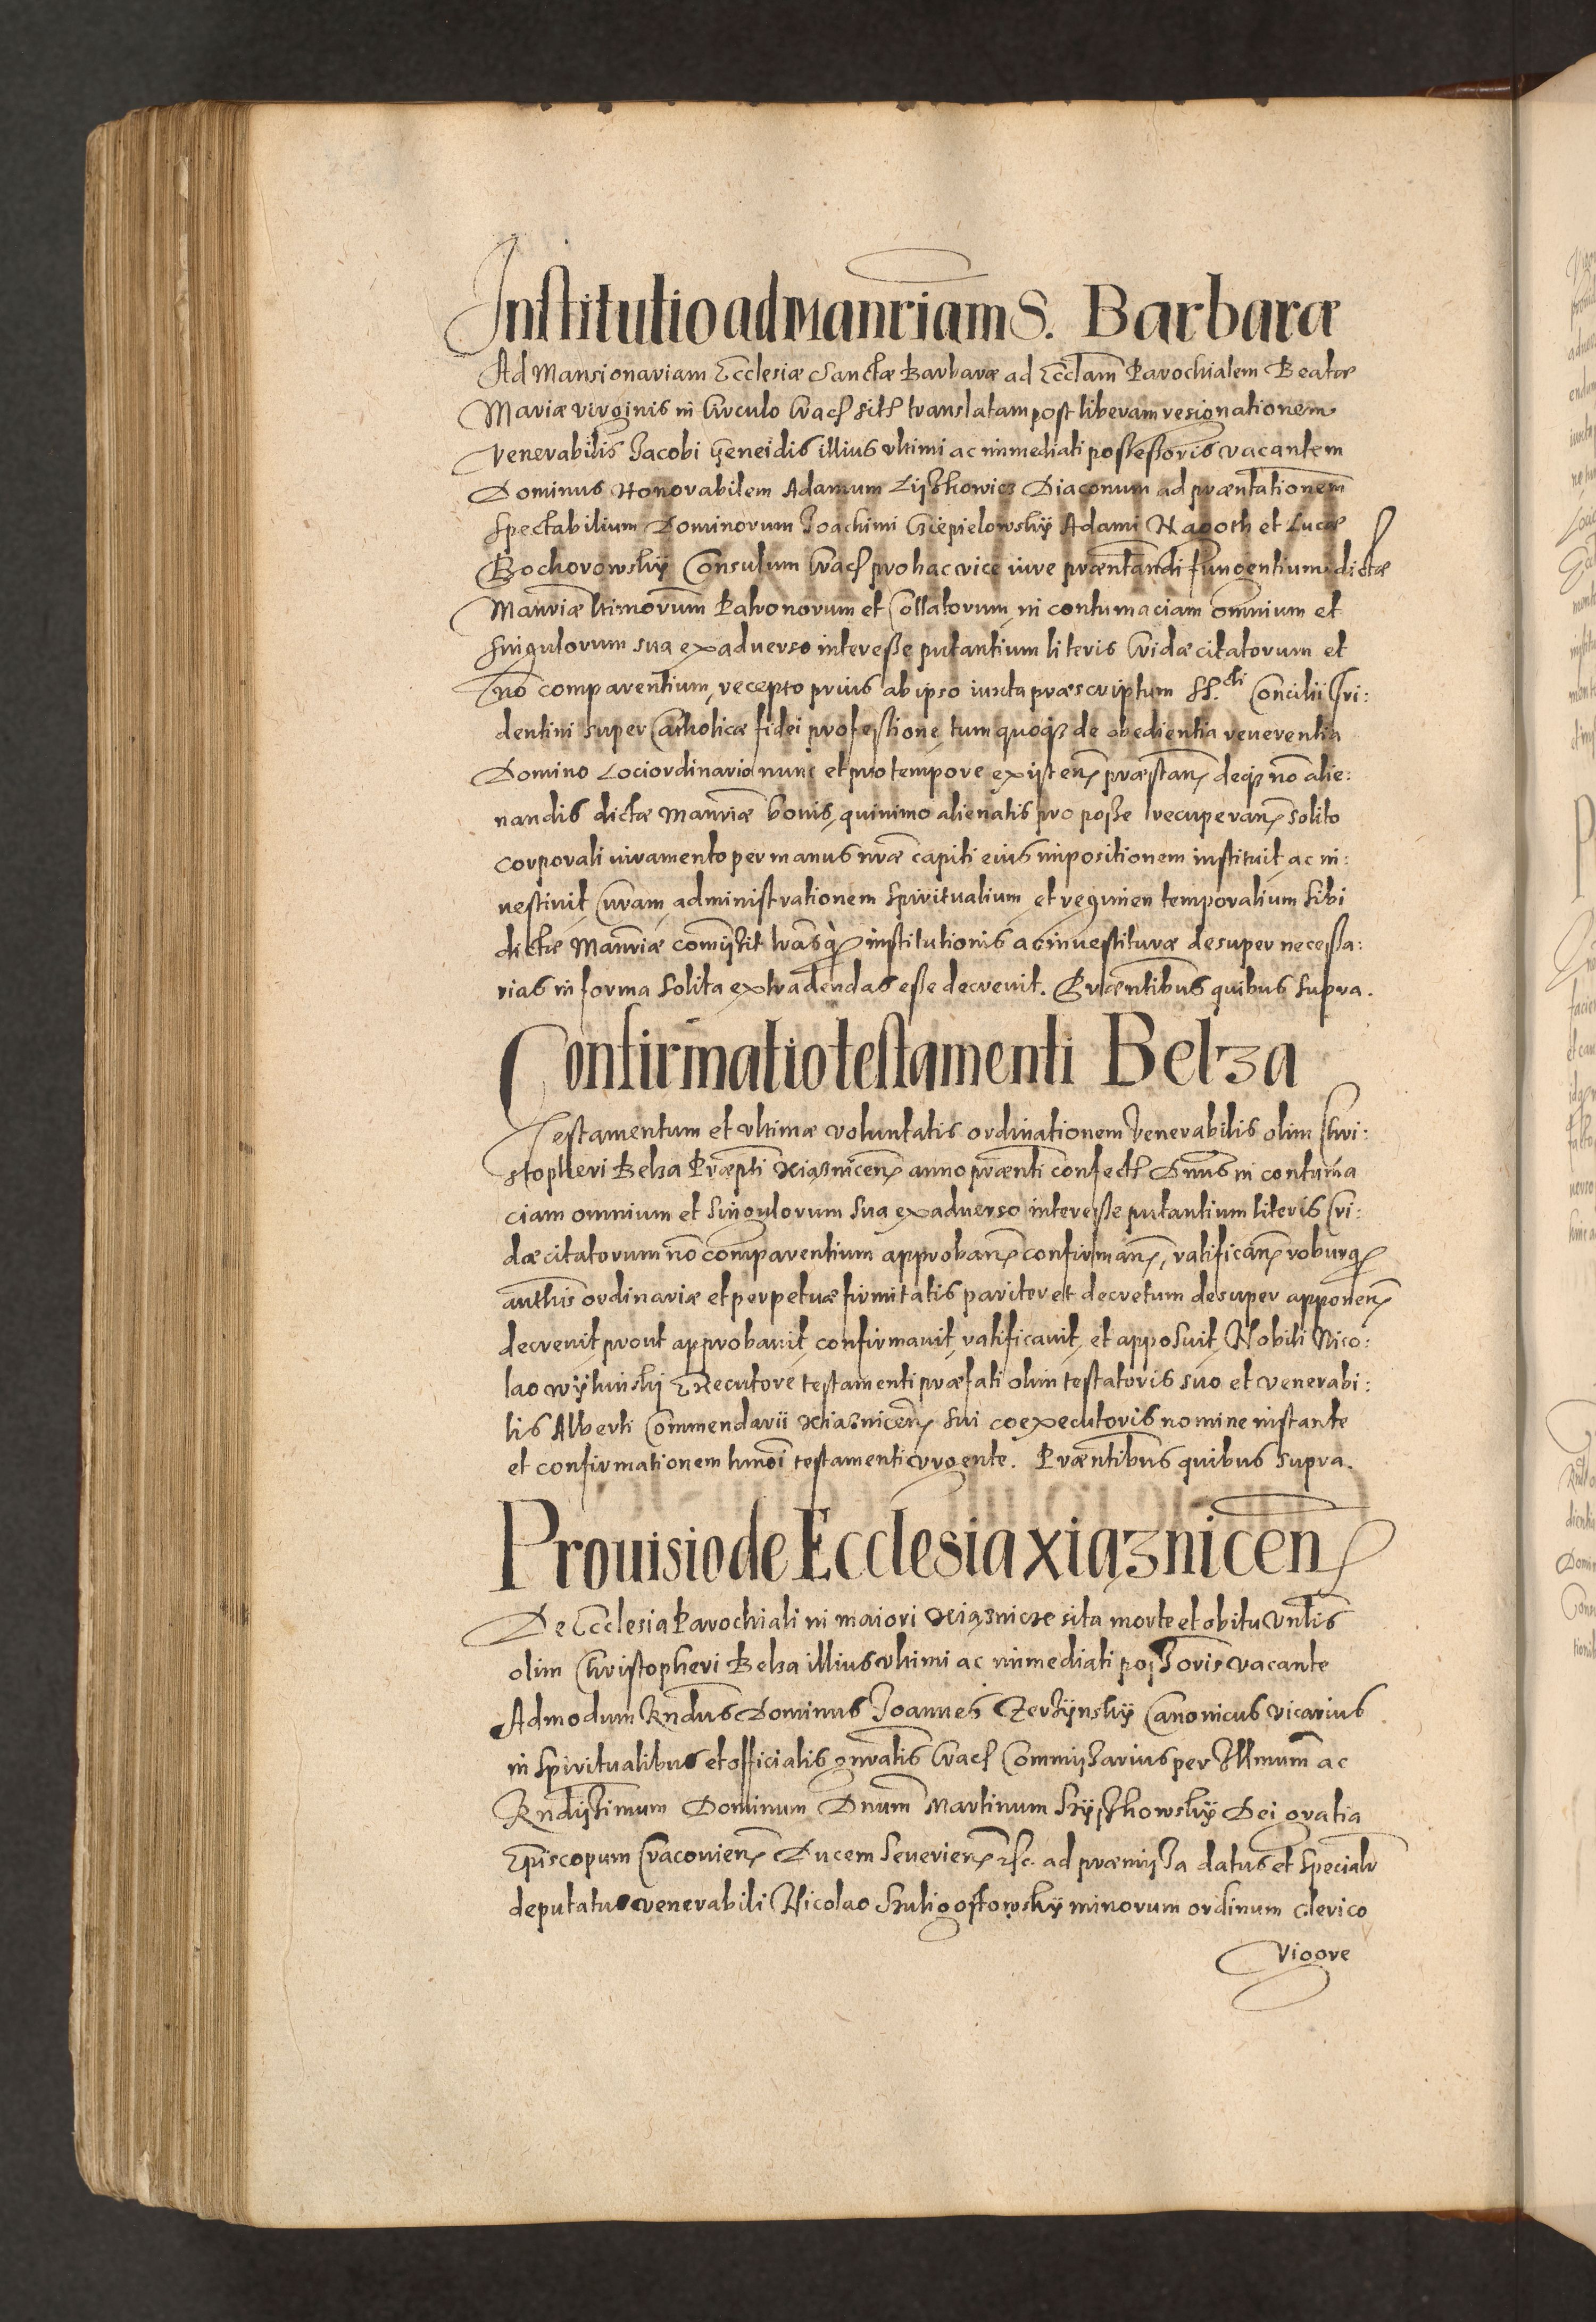 Institutio ad Manriam S. Barbaræ
Ad Mansionariam Ecclesiæ Sanctæ Barbaræ ad Ecclam Parochialem Beatæ
Mariæ virginis in Circulo Crac sit translatam post liberam resignationem
Venerabilis Jacobi Geneidis illius vltimi ac immediati possessoris vacantem
Dominus Honorabilem Adamum Lyszkowicz Diaconum ad præntationem
Spectabilium Dominorum Joachimi Cziepielowsky Adami Nagoth et Lucæ
Bochorowsky Consulum Crac pro hac vice iure præntandi fungentium dictæ
Manriæ ltimorum Patronorum et Collatorum, in contumaciam omnium et
singulorum sua ex aduerso interesse putantium literis Cridæ citatorum et
no comparentium, recepto prius ab ipso iuxta præscriptum SS.cti Concilii Tri:
dentini super Catholicæ fidei professione, tum quoq3 de obedientia reuerentia
Domino Loci ordinario nunc et pro tempore existen præstan deq3 no alie:
nandis dictæ Manriæ bonis, quinimo alienatis pro posse recuperan solito
corporali iuramento per manus nræ capiti eius impositionem instituit ac in:
uestiuit, Curam, administrationem spiritualium et regimen temporalium sibi
dictæ Manriæ comisit trasq institutionis ac inuestituræ desuper necessa:
rias in forma solita extradendas esse decreuit. Præntibus quibus supra.
Confirmatio testamenti Belza
Testamentum et vltimæ voluntatis ordinationem Venerabilis olim Chri:
stopheri Belza Præpti Xiąznicen anno prænti confect Dnus in contuma
ciam omnium et singulorum sua ex aduerso interesse putantium literis Cri:
dæ citatorum no comparentium approban confirman, ratifican roburq
authis ordinariæ et perpetuæ firmitatis pariter et decretum desuper apponen
decreuit prout approbauit, confirmauit, ratificauit, et apposuit, Nobili Nico:
lao Executore testamenti præfati olim testatoris suo et venerabi:
lis Alberti Commendarii Xiąznicen sui coexecutoris nomine instante
et confirmationem hmoi testamenti vrgente. Præntibus quibus supra.
Prouisio de Ecclesia Xiąznicen
De Ecclesia Parochiali in maiori Xiąznicze sita morte et obitu Vnlis
olim Christopheri Belza illius vltimi ac immediati possoris vacante
Admodum Rndus Dominus Joannes Czerzynsky Canonicus Vicarius
in spiritualibus et officialis gnralis Crac Commissarius per Illmum ac
Rndissimum Dominum Dnum Martinum Szyszkowsky Dei gratia
Episcopum Cracouien Ducem Seuerien &c. ad præmissa datus et specialr
deputatus venerabili Nicolao Szuligostowsky minorum ordinum clerico
Vigore